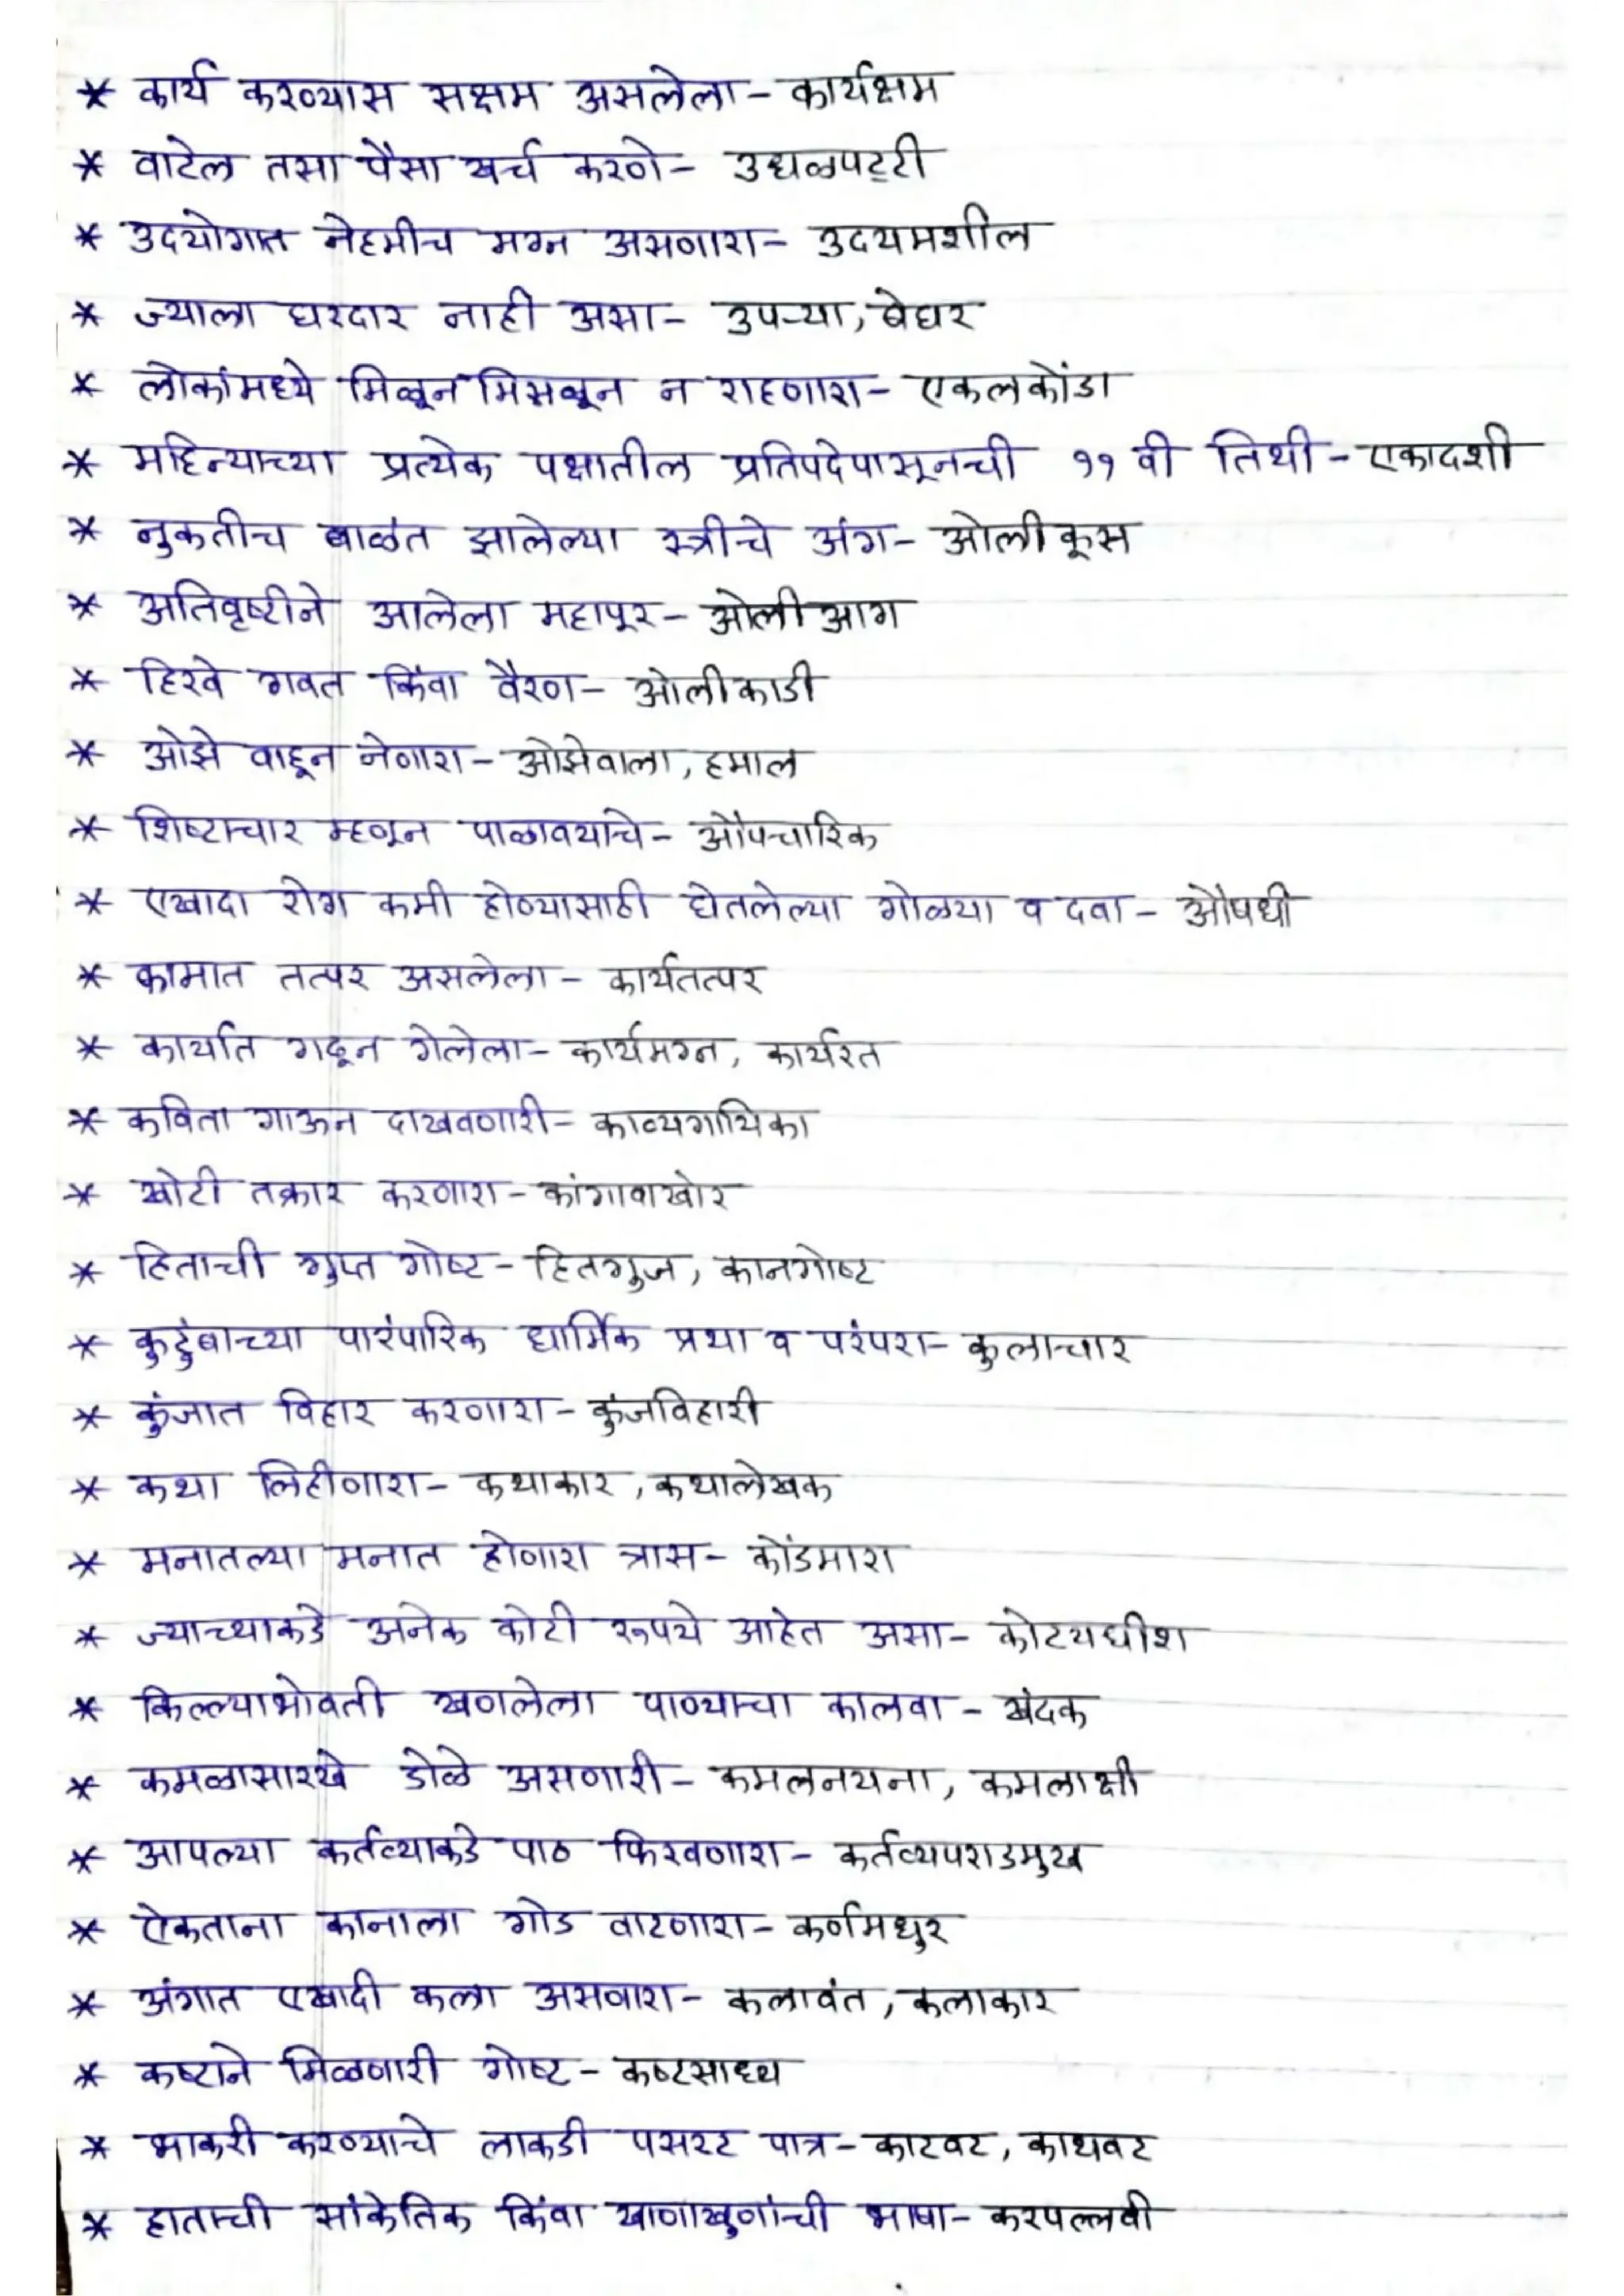 * कार्य करण्यास सक्षम असलेला- कार्यक्षम
* वाटेल तसा पैसा खर्च करणे- उधळपट्टी
* उदयोगात नेहमीच मग्न असणारा- उदयमशील
* ज्याला घरदार नाही असा- उपऱ्या, बेघर
* लोकांमध्ये मिळून मिसळून न राहणारा- एकलकोंडा
* महिन्याच्या प्रत्येक पक्षातील प्रतिपदेपासूनची ११ वी तिथी- एकादशी
* नुकतीच बाळंत झालेल्या स्त्रीचे अंग- ओली कूस
* अतिवृष्टीने आलेला महापूर- ओली आग
* हिरवे गवत किंवा वैरण- ओली काडी
* ओझे वाहून नेणारा- ओझेवाला, हमाल
* शिष्टाचार म्हणून पाळावयाचे- औपचारिक
* एखादा रोग कमी होण्यासाठी घेतलेल्या गोळया व दवा- औषधी
* कामात तत्पर असलेला- कार्यतत्पर
* कार्यात गढून गेलेला- कार्यमग्न, कार्यरत
* कविता गाऊन दाखवणारी- काव्यगायिका
* खोटी तक्रार करणारा- कांगावाखोर
* हिताची गुप्त गोष्ट- हितगुज, कानगोष्ट
* कुटुंबाच्या पारंपारिक धार्मिक प्रथा व परंपरा- कुलाचार
* कुंजात विहार करणारा- कुंजविहारी
* कथा लिहीणारा- कथाकार, कथालेखक
* मनातल्या मनात होणारा त्रास- कोंडमारा
* ज्याच्याकडे अनेक कोटी रूपये आहेत असा- कोटयधीश
* किल्ल्याभोवती खणलेला पाण्याचा कालवा- खंदक
* कमळासारखे डोळे असणारी- कमलनयना, कमलाक्षी
* आपल्या कर्तव्याकडे पाठ फिरवणारा- कर्तव्यपराडमुख
* ऐकताना कानाला गोड वाटणारा- कर्णमधुर
* अंगात एखादी कला असवारा- कलावंत, कलाकार
* कष्टाने मिळणारी गोष्ट- कष्टसाध्य
* भाकरी करण्याचे लाकडी पसरट पात्र- काटवट, काथवट
* हाताची सांकेतिक किंवा खाणाखुणांची भाषा- करपल्लवी